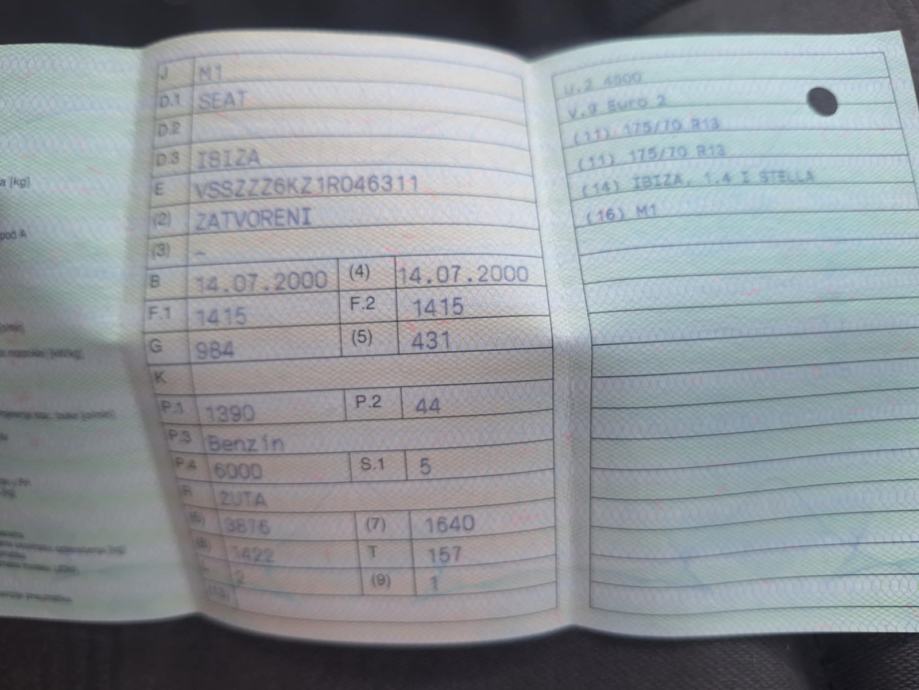 a [kg]
pod A
J M1
D.1 SEAT
D.2
D.3 IBIZA
E VSSZZZ6KZ1R046311
(2) ZATVORENI
(3) –
B 14.07.2000 (4) 14.07.2000
F.1 1415 F.2 1415
G 984 (5) 431
K
P.1 1390 P.2 44
P.3 Benzin
P.4 6000 S.1 5
R ŽUTA
(6) 3876 (7) 1640
(8) 1422 T 157
L 2 (9) 1
u.2 4500
V.9 Euro 2
(11) 175/70 R13
(11) 175/70 R13
(14) IBIZA, 1.4 I STELLA
(16) M1